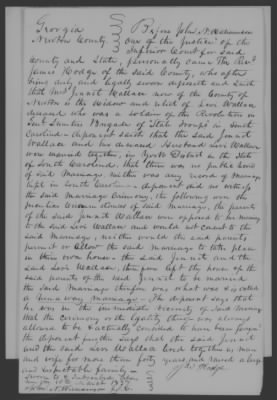 Georgia
Newton County.
Before John N. Williamson
one of the Justices of the
Inferior Court for said
County and State, personally came The Revd
James Hodge of the said County, who after
being duly and legally sworn deposeth and saith
that Mrs Jennet Wallace now of the County of
Newton is the widow and relict of Levi Wallace
deceased who was a soldier of the Revolution in
Genl Sumter Brigade of State troops in South
Carolina - deponent saith that the said Jennet
Wallace and her deceased Husband Levi Wallace
were married together, in York District in the State
of South Carolina, that there was no public bond
of said Marriage, neither was any record of Marriage
kept in South Carolina - deponent did not witness
the said Marriage Ceremony, the following were the
the parents
of the said Jennet Wallace were opposed to her marriage
to the said Levi Wallace and would not consent to the
said marriage, neither would the said parents
permit or allow the said marriage to take place
in their own house - the said Jennet and the
said Levi Wallace, therefore left the house of the
said parents of the said Jennet to be married
the said marriage therefore was what was called
a runaway marriage - The deponent says that
he was in the immediate vicinity of said marriage
that the ceremony or the legality thereof was always
allowed to be & actually considered to have been
the deponent further says that the said Jennet
and the said Levi Wallace lived together as man
and wife for more than forty years and raised a large
and respectable family -
Sworn to & Subscribed
Jas Hodge